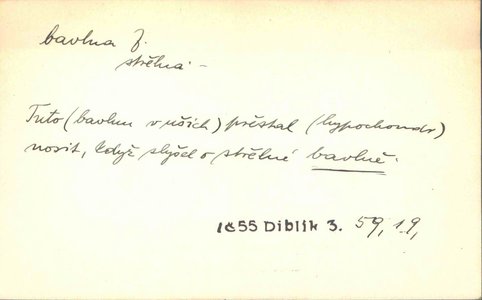 bavlna f.
střelná –
Tuto (bavlnu v uších) přestal (hypochondr)
nosit, když slyšel o střelné bavlně.
1855 Diblik 3. 59, 19,